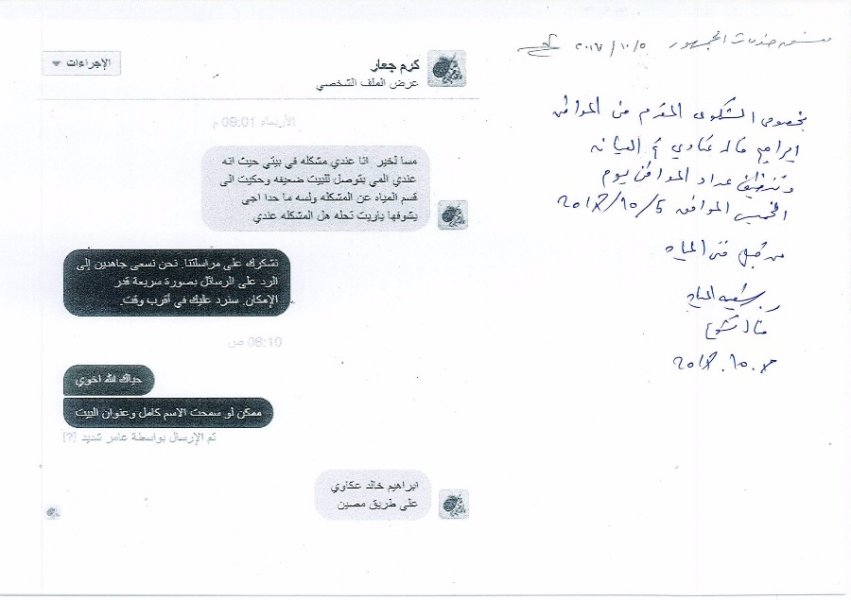 كرم جعار
عرض الملف الشخصي
الإجراءات
الأربعاء 09:01 م
مسا لخير انا عندي مشكله في بيتي حيث انه
عندي المي بتوصل للبيت ضعيفه وحكيت الى
قسم المياه عن المشكله ولسه ما حدا اجى
يشوفها ياريت تحله هل المشكله عندي
نشكرك على مراسلتنا. نحن نسعى جاهدين إلى
الرد على الرسائل بصورة سريعة قدر
الإمكان. سنرد عليك في أقرب وقت.
08:10 ص
حياك الله اخوي
ممكن لو سمحت الاسم كامل وعنوان البيت
تم الإرسال بواسطة عامر شديد [?]
ابراهيم خالد عكاوي
على طريق مصين
خدمات الجمهور ٢٠١٧/١٠/٥
بخصوص الشكوى المقدم من المواطن
ابراهيم خالد عكاوي تم الصيانه
وتنظيف عداد المواطن يوم
الخميس الموافق ٢٠١٧/١٠/5
من قبل فني المياه
خالد